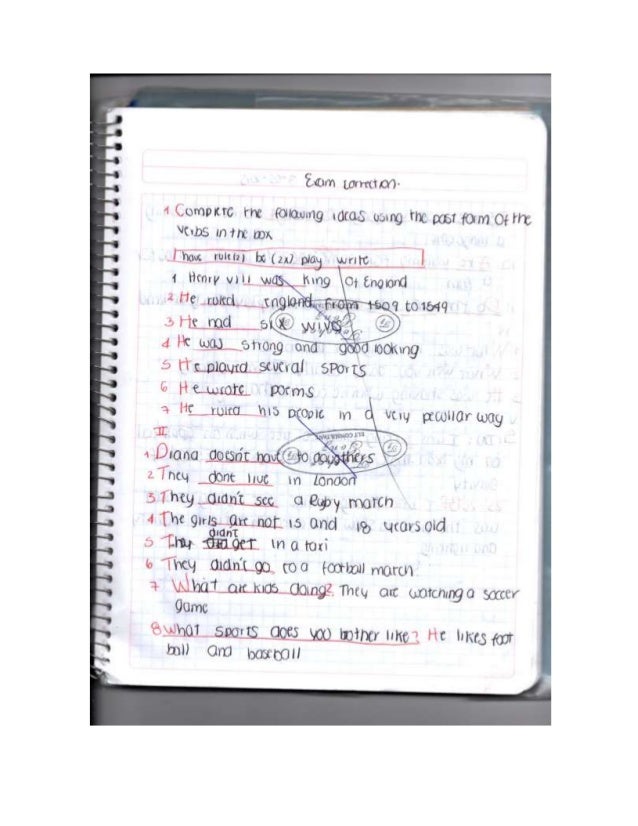 Exam correction.
1 Complete the following ideas using the past form of the
verbs in the box
have rule(2) be (2x) play write
1 Henry VIII was King Of England
2 He ruled England from 1509 to 1549
3 He had six wives
4 He was strong and good looking
5 He played several sports
6 He wrote poems
7 He ruled his people in a very peculiar way
II
1 Diana doesn't have to daughters
2 They dont live in London
3 They didn't see a Ruby match
4 The girls are not 15 and 18 years old
didn't
5 They get in a taxi
6 They didn't go to a football march
7 What are kids doing? They are watching a soccer
game
8 what sports does you bother like? He likes foot
ball and baseball